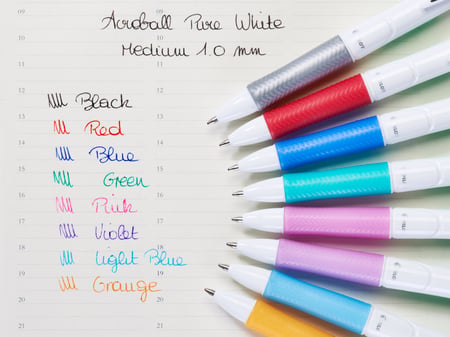 09 09
Acroball Pure White
Medium 1.0 mm
12 12
Black
13 13
Red
14 14
Blue
15 15
Green
16 16
Pink
17 17
Violet
18 18
Light Blue
19 19
Orange
20
21 21